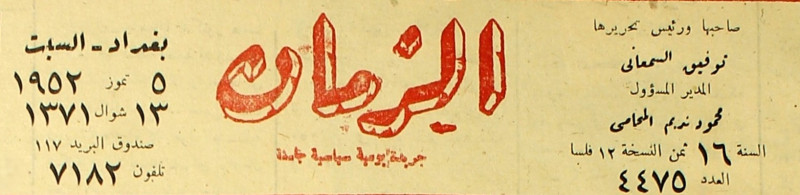 صاحبها ورئيس تحريرها
توفيق السمعاني
المدير المسؤول
محمود نديم المحامي
السنة ١٦ ثمن النسخة ١٢ فلسا
العدد ٤٤٧٥
الزمان
جريدة يومية سياسية جامعة
بغداد - السبت
٥ تموز ١٩٥٢
١٣ شوال ١٣٧١
صندوق البريد ١١٧
تلفون ٧١٨٢